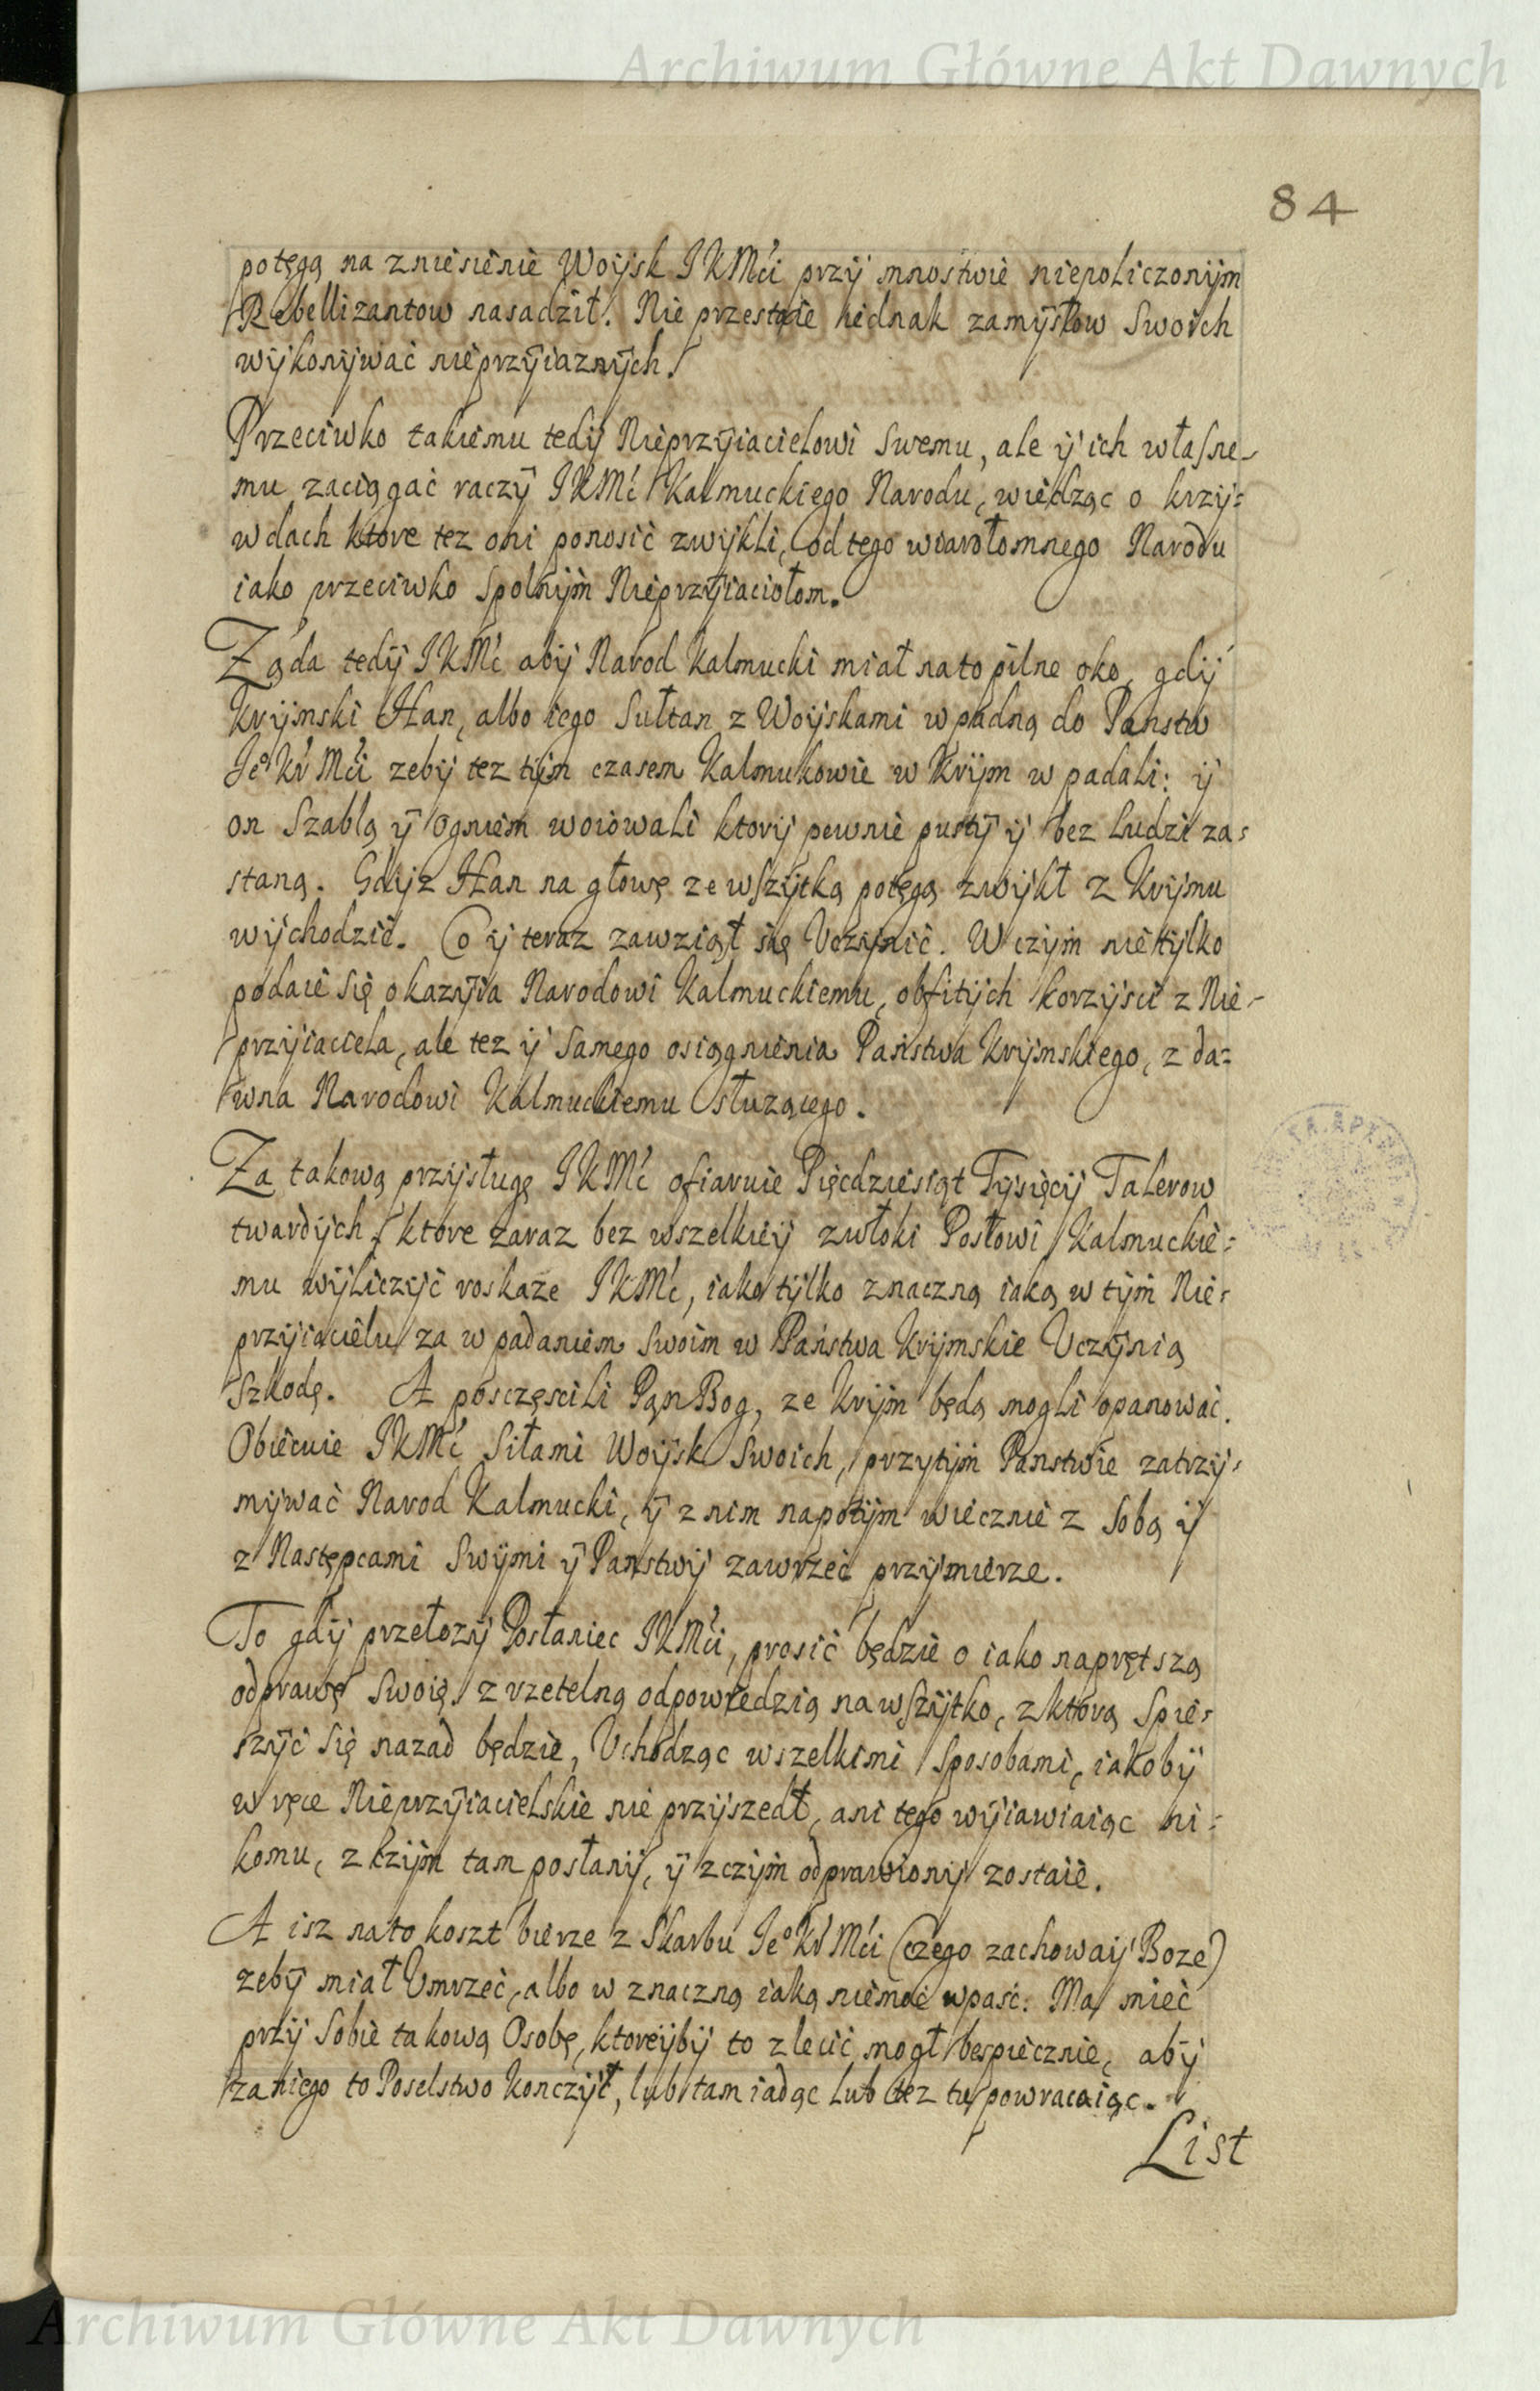 Archiwum Główne Akt Dawnych
84
potęgą na zniesienie Woÿsk IKMći przÿ mnostwie niepoliczonÿm
Rebellizantow nasadził. Nie przestaie iednak zamÿsłow Swoich
wÿkonÿwać nieprzÿiaznÿch.
Przeciwko takiemu tedÿ Nieprzÿiacielowi Swemu, ale ÿ ich własne-
mu zaciągać raczÿ IKMć Kalmuckiego Narodu, wiedząc o krzÿ=
wdach ktore tez oni ponosić zwÿkli, od tego wiarołomnego Narodu
iako przeciwko Spolnÿm Nieprzÿiaciołom.
Ząda tedÿ IKMć abÿ Narod Kalmucki miał na to pilne oko, gdÿ
Krÿmski Han, albo iego Sułtan z Woÿskami wpadną do Panstw
Jeº Kr Mći zebÿ tez tÿm czasem Kalmukowie w Krÿm wpadali: ÿ
on Szablą ÿ Ogniem woiowali ktorÿ pewnie pustÿ ÿ bez ludzi za=
staną. Gdÿz Han na głowę ze wszÿtką potęgą zwÿkł z Krÿmu
wÿchodzić. Co ÿ teraz zawziął się Uczÿnić. W czÿm nietÿlko
podaie się okazÿia Narodowi Kalmuckiemu, obfitÿch korzÿsci z Nie-
przÿiaciela, ale tez ÿ Samego osiągnienia Państwa Krÿmskiego, z da=
wna Narodowi Kalmuckiemu służącego.
Za takową przÿsługę IKMć ofiaruie Pięcdziesiąt Tÿsięcÿ Talerow
twardÿch, ktore zaraz bez wszelkieÿ zwłoki Posłowi Kalmuckie=
mu wÿliczÿć roskaze IKMć, iako tÿlko znaczną iaką w tÿm Nie=
przÿiacielu za wpadaniem Swoim w Państwa Krÿmskie Uczÿnią
Szkodę. A posczęscili Pan Bog, ze Krÿm będą mogli opanować.
Obiecuie IKMć Siłami Woÿsk Swoich, przytÿm Panstwie zatrzÿ=
mÿwać Narod Kalmucki, ÿ z nim napotÿm wiecznie z Sobą ÿ
z Następcami Swÿmi ÿ Panstwÿ zawrzeć przÿmierze.
To gdÿ przełozÿ Posłaniec IKMći, prosić będzie o iako naprętszą
odprawę Swoię, z rzetelną odpowiedzią na wszÿtko, z ktorą Spie=
szÿć Się nazad będzie, Uchodząc wszelkimi Sposobami, iakobÿ
w ręce Nieprzÿiacielskie nie przÿszedł, ani tego wÿiawiaiąc ni=
komu, z czÿm tam posłanÿ, ÿ z czÿm odprawionÿ zostaie.
A isz na to koszt bierze z Skarbu Jeº Kr Mći (czego zachowaÿ Boze)
zebÿ miał Umrzeć, albo w znaczną iaką niemoc wpaść: Ma mieć
przÿ Sobie takową Osobę, ktoreÿbÿ to zlecić mogł bespiecznie, abÿ
za niego to Poselstwo konczÿł, lub tam iadąc lub tez tu powracaiąc.
List
Archiwum Główne Akt Dawnych